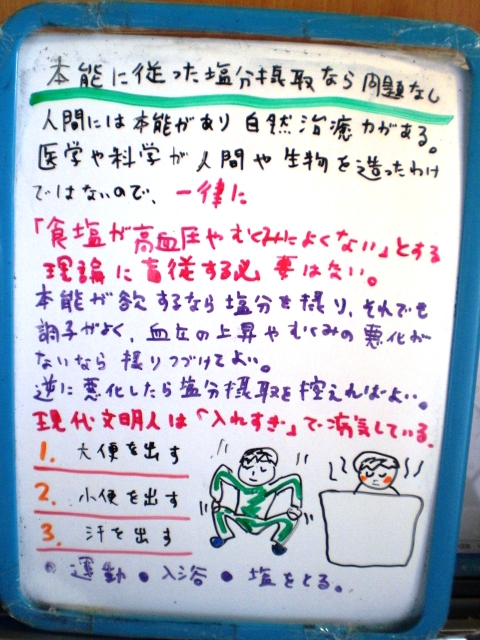 本能に従った塩分摂取なら問題なし
人間には本能があり自然治癒力がある。
医学や科学が人間や生物を造ったわけ
ではないので、一律に
「食塩が高血圧やむくみによくない」とする
理論に盲従する必要はない。
本能が欲するなら塩分を摂り、それでも
調子がよく、血圧の上昇やむくみの悪化が
ないなら摂りつづけてよい。
逆に悪化したら塩分摂取を控えればよい。
現代文明人は「入れすぎ」で病気している。
1. 大便を出す
2. 小便を出す
3. 汗を出す
●運動●入浴●塩をとる。